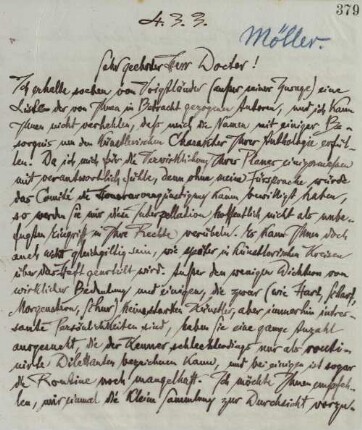 379
4. 3. 3.
Möller.
Sehr geehrter Herr Doctor!
Ich erhalte soeben von Voigtländer (außer seiner Zusage) eine
Liste der von Ihnen in Betracht gezogenen Autoren, und ich kann
Ihnen nicht verhehlen, daß mich die Namen mit einiger Be-
sorgnis um den künstlerischen Charakter Ihrer Anthologie erfül-
len. Da ich mich für die Verwirklichung Ihres Planes einigermaßen
mit verantwortlich fühle, denn ohne meine Fürsprache würde
das Comité die kaum bewilligt haben,
so werden Sie mir diese Interpellation hoffentlich nicht als unbe-
fugten Eingriff in Ihre Rechte verübeln. Es kann Ihnen doch
auch nicht gleichgiltig sein, wie später in künstlerischen Kreisen
über das Heft geurteilt wird. Außer den wenigen Dichtern von
wirklicher Bedeutung und einigen, die zwar (wie Hart,
Morgenstern, ) keine starken Künstler, aber immerhin inter-
essante Persönlichkeiten sind, haben Sie eine ganze Anzahl
ausgesucht, die der Kenner schlechterdings nur als routi-
nirte Dilettanten bezeichnen kann, und bei einigen ist sogar
die Routine noch mangelhaft. Ich möchte Ihnen empfeh-
len, mir einmal die kleine Sammlung zur Durchsicht vorzule-